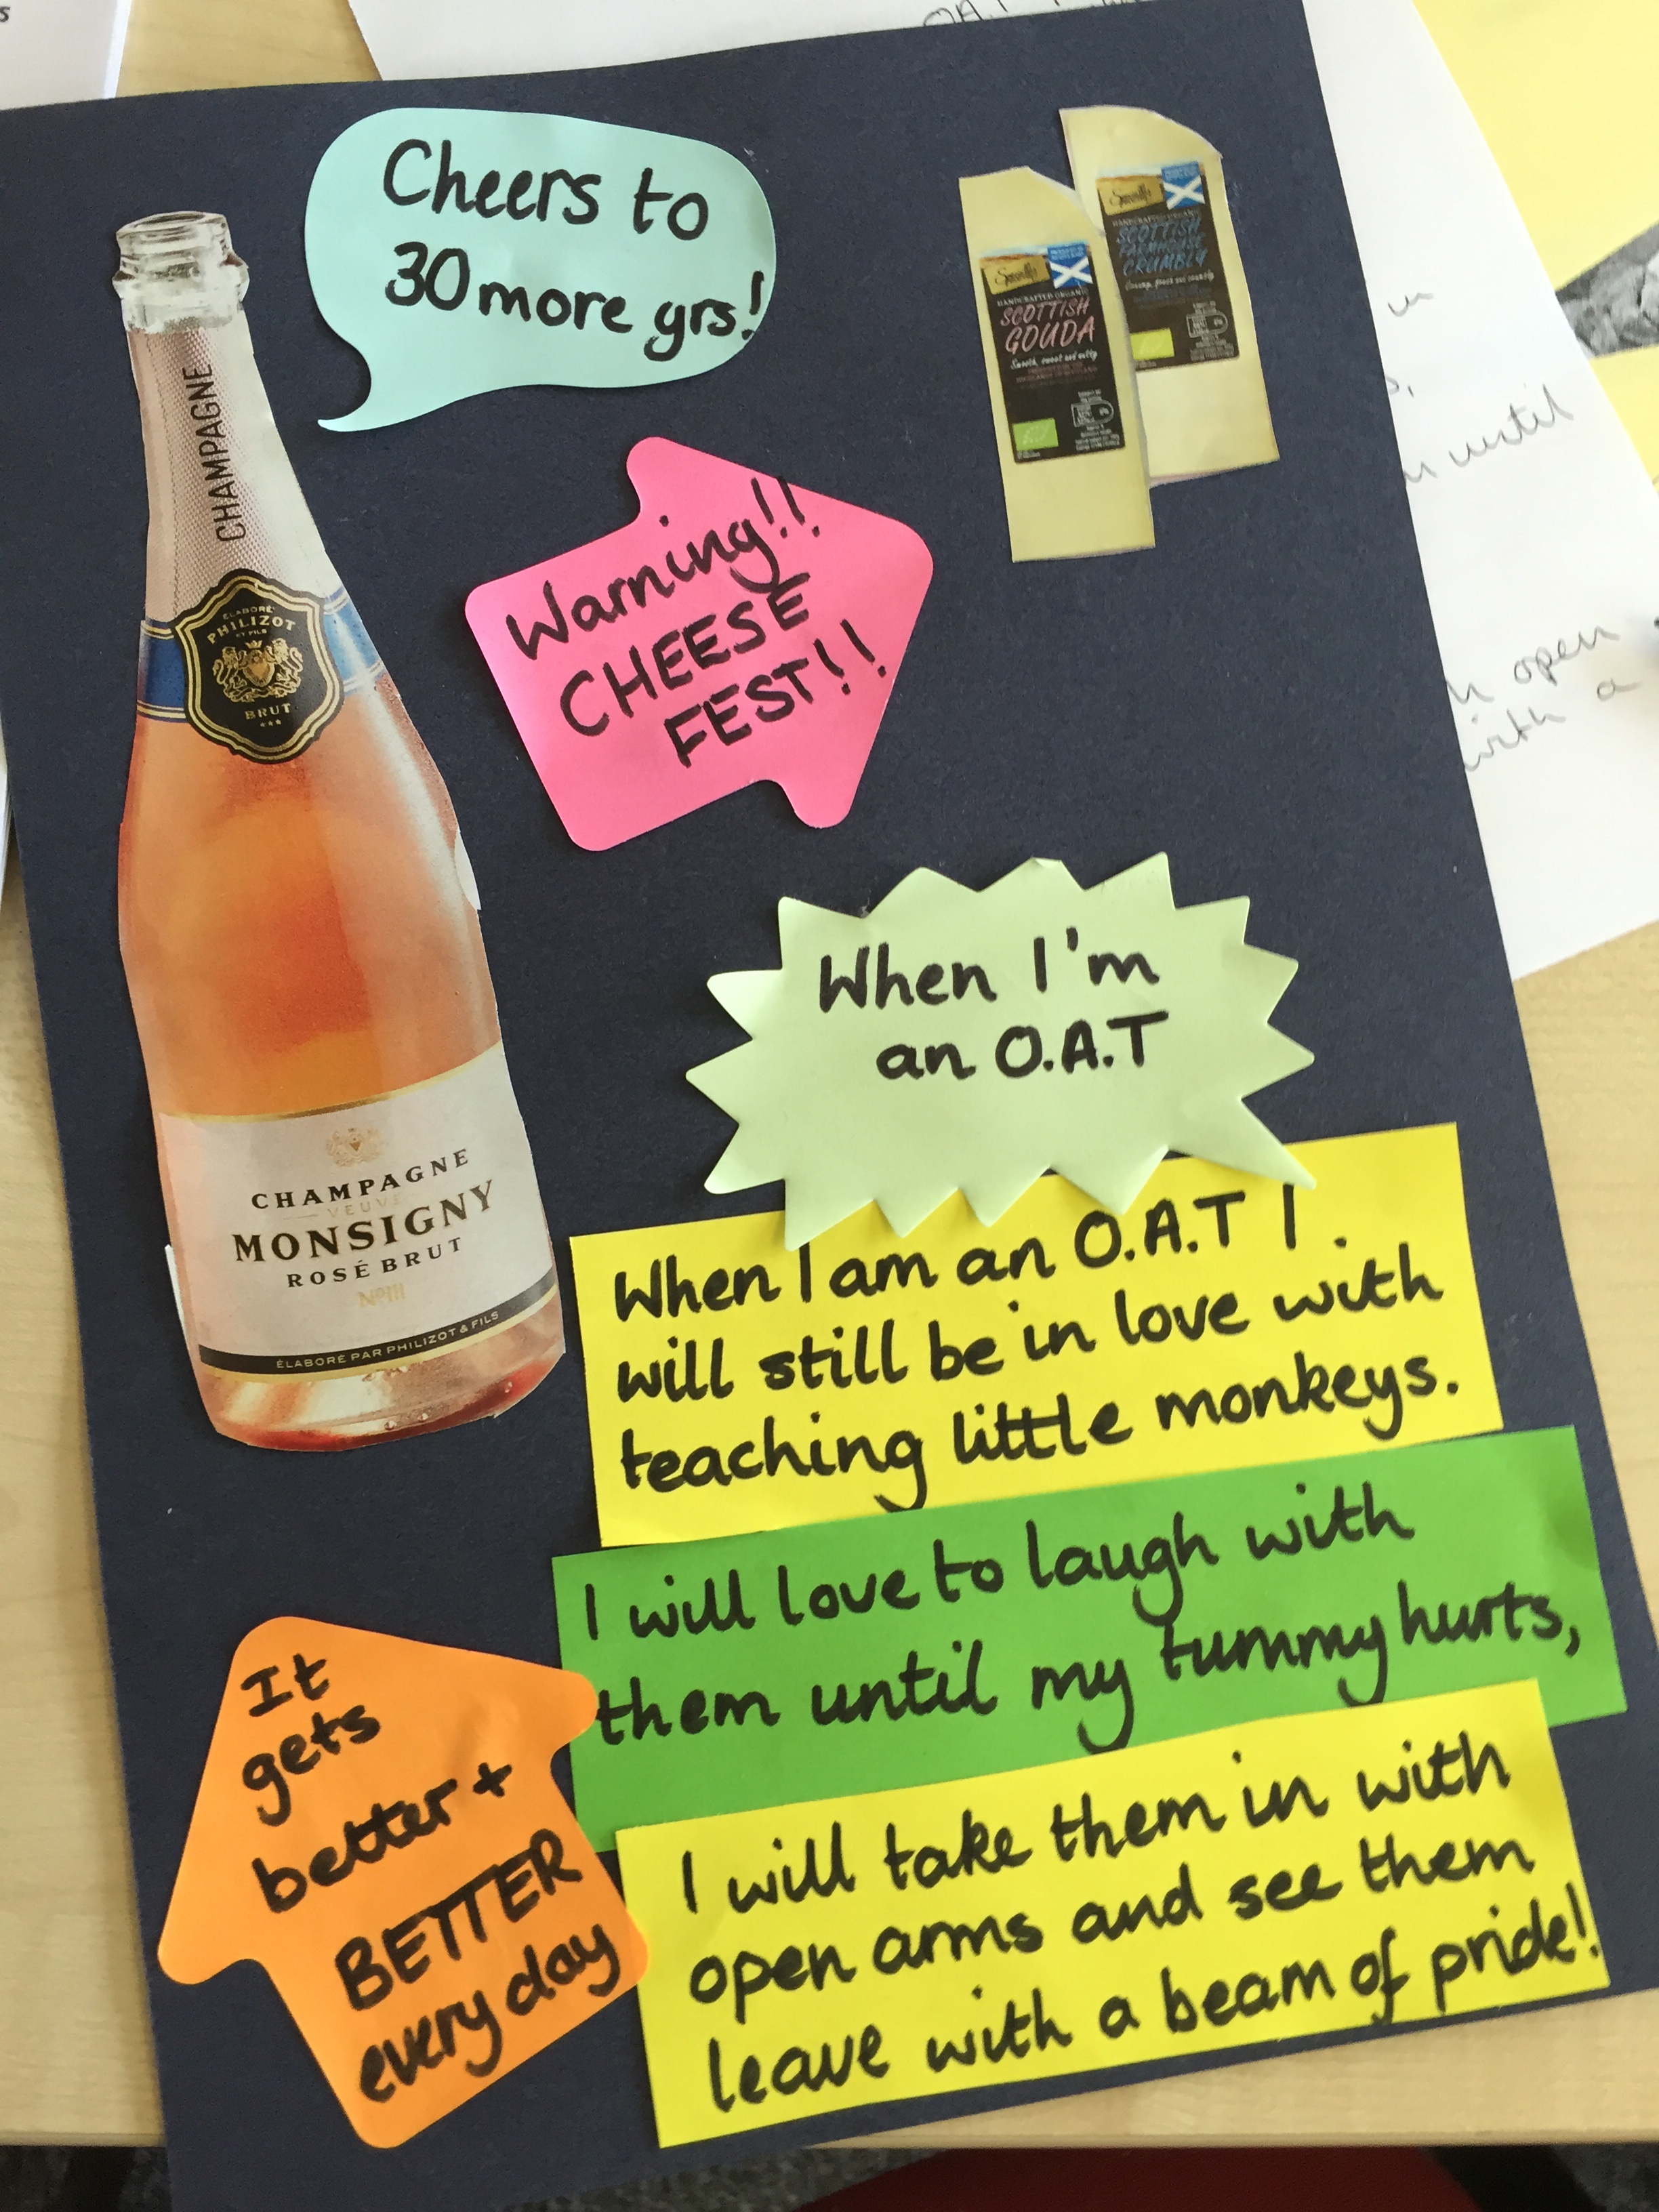 Cheers to
30 more yrs!
CHAMPAGNE
ÉLABORÉ
PHILIZOT
ET FILS
BRUT
CHAMPAGNE
VEUVE
MONSIGNY
ROSÉ BRUT
NºIII
ÉLABORÉ PAR PHILIZOT & FILS
Specially
HANDCRAFTED ORGANIC
SCOTTISH
GOUDA
Smooth, sweet and nutty
HANDCRAFTED ORGANIC
SCOTTISH
FARMHOUSE
CRUMBLY
Warning!!
CHEESE
FEST!!
When I'm
an O.A.T
When I am an O.A.T I
will still be in love with
teaching little monkeys.
I will love to laugh with
them until my tummy hurts,
I will take them in with
open arms and see them
leave with a beam of pride!
It
gets
better +
BETTER
every day
until
open
with a